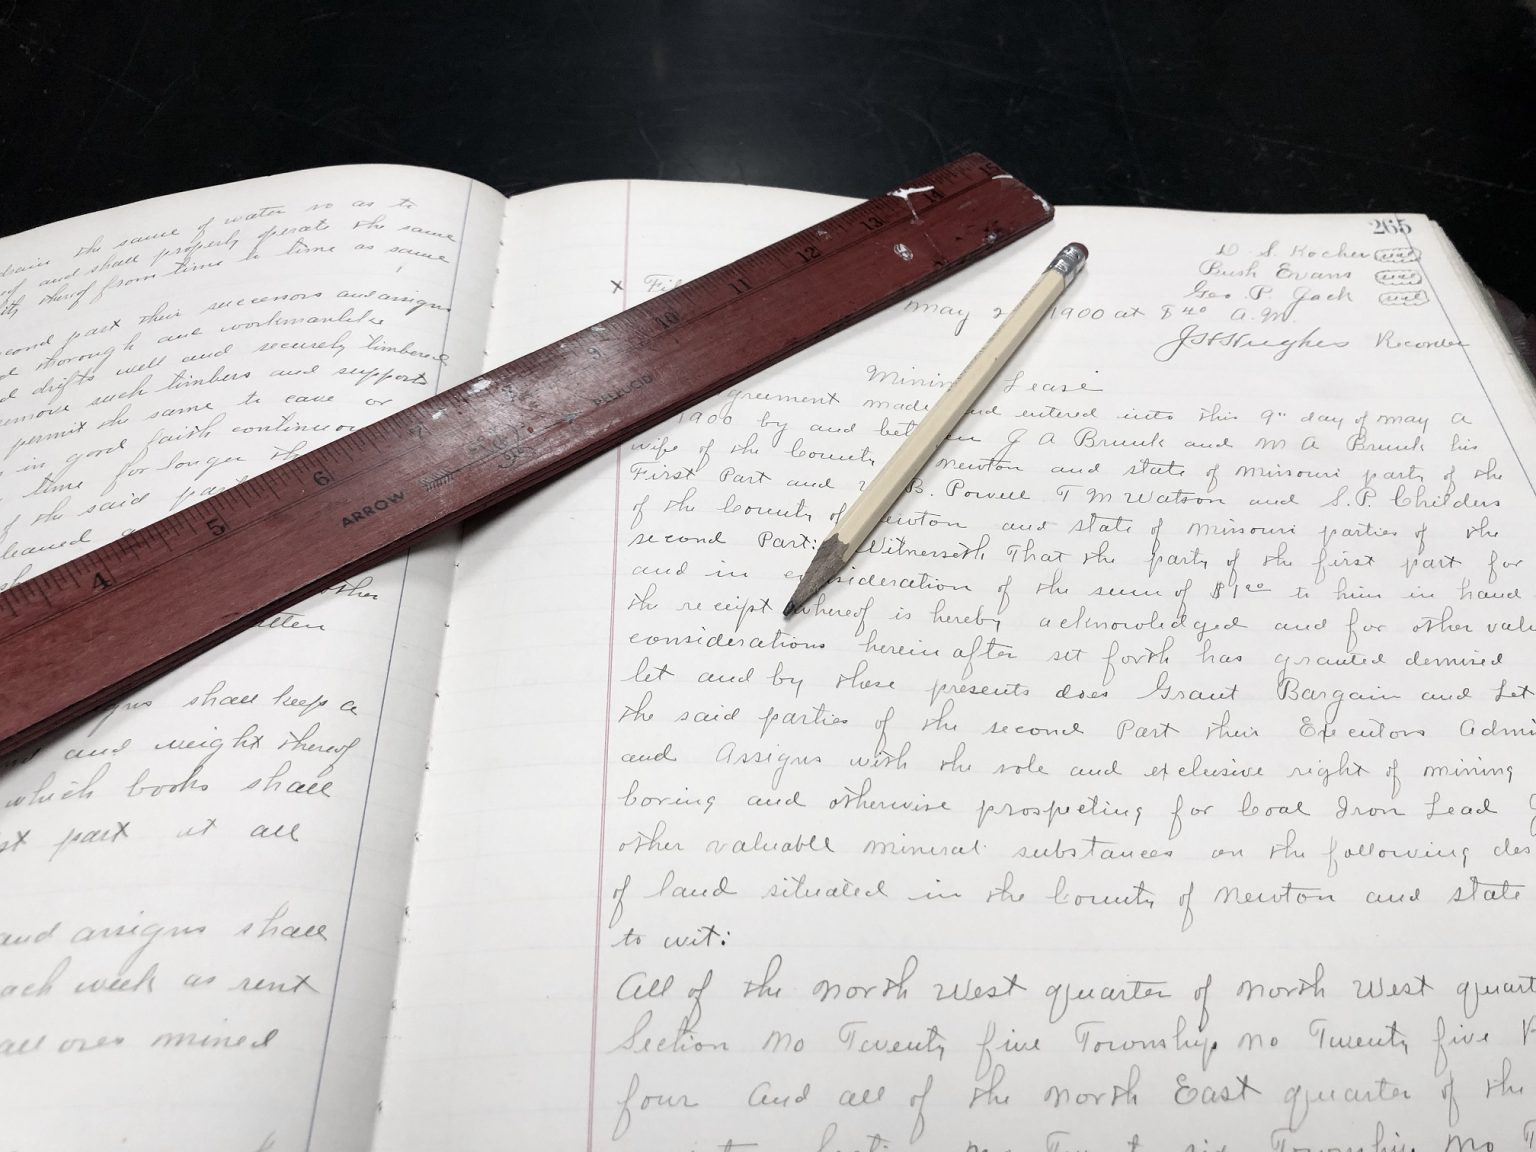 the same of water so as to
and shall properly operate the same
thereof from time to time as same
second part their successors and assigns
thorough and workmanlike
drifts well and securely timbered
such timbers and supports
permit the same to cave or
in good faith continue
time for longer
of the said
shall keep a
and weight thereof
which books shall
part at all
and assigns shall
week as rent
all ores mined
4 5 6 7 9 10 11 12 13 14 15
ARROW
PELLUCID
265
D. S. Kocher seal
Bush Evans seal
Geo. P. Jack seal
X
May 1900 at 8 40 A.M.
J H Hughes Recorder
Lease
made and entered into this 9th day of may A
1900 by and J A Brunk and M A Brunk his
wife of the County Newton and state of Missouri party of the
First Part and B. Powell T M Watson and S. P. Childers
of the County of Newton and state of Missouri parties of the
second Part: Witnesseth That the party of the first part for
and in consideration of the sum of $1.00 to him in hand
the receipt whereof is hereby acknowledged and for other
considerations herein after set forth has granted demised
let and by these presents does Grant Bargain and Let
the said parties of the second Part their Executors
and Assigns with the sole and exclusive right of mining
boring and otherwise prospecting for Coal Iron Lead
other valuable mineral substances on the following
of land situated in the County of Newton and state
to wit:
All of the North West quarter of North West
Section No Twenty five Township No Twenty five
four and all of the North East quarter of the
six Township No